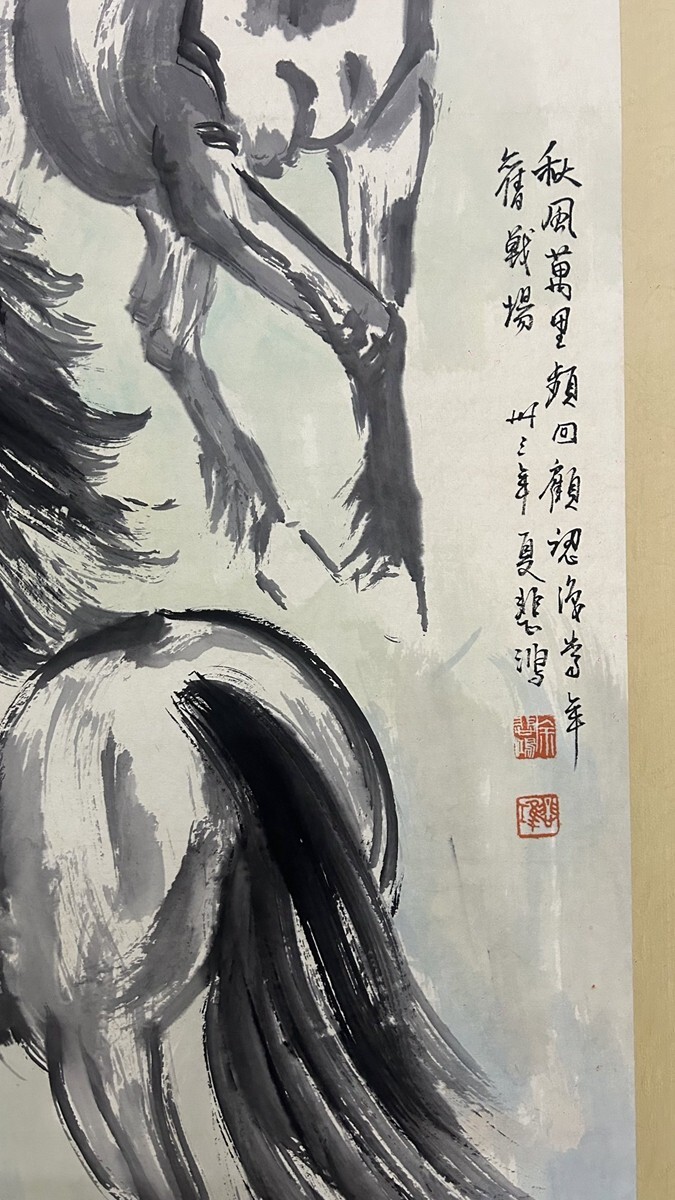 秋風萬里頻回顧認得當年
舊戰場
卅三年夏悲鴻